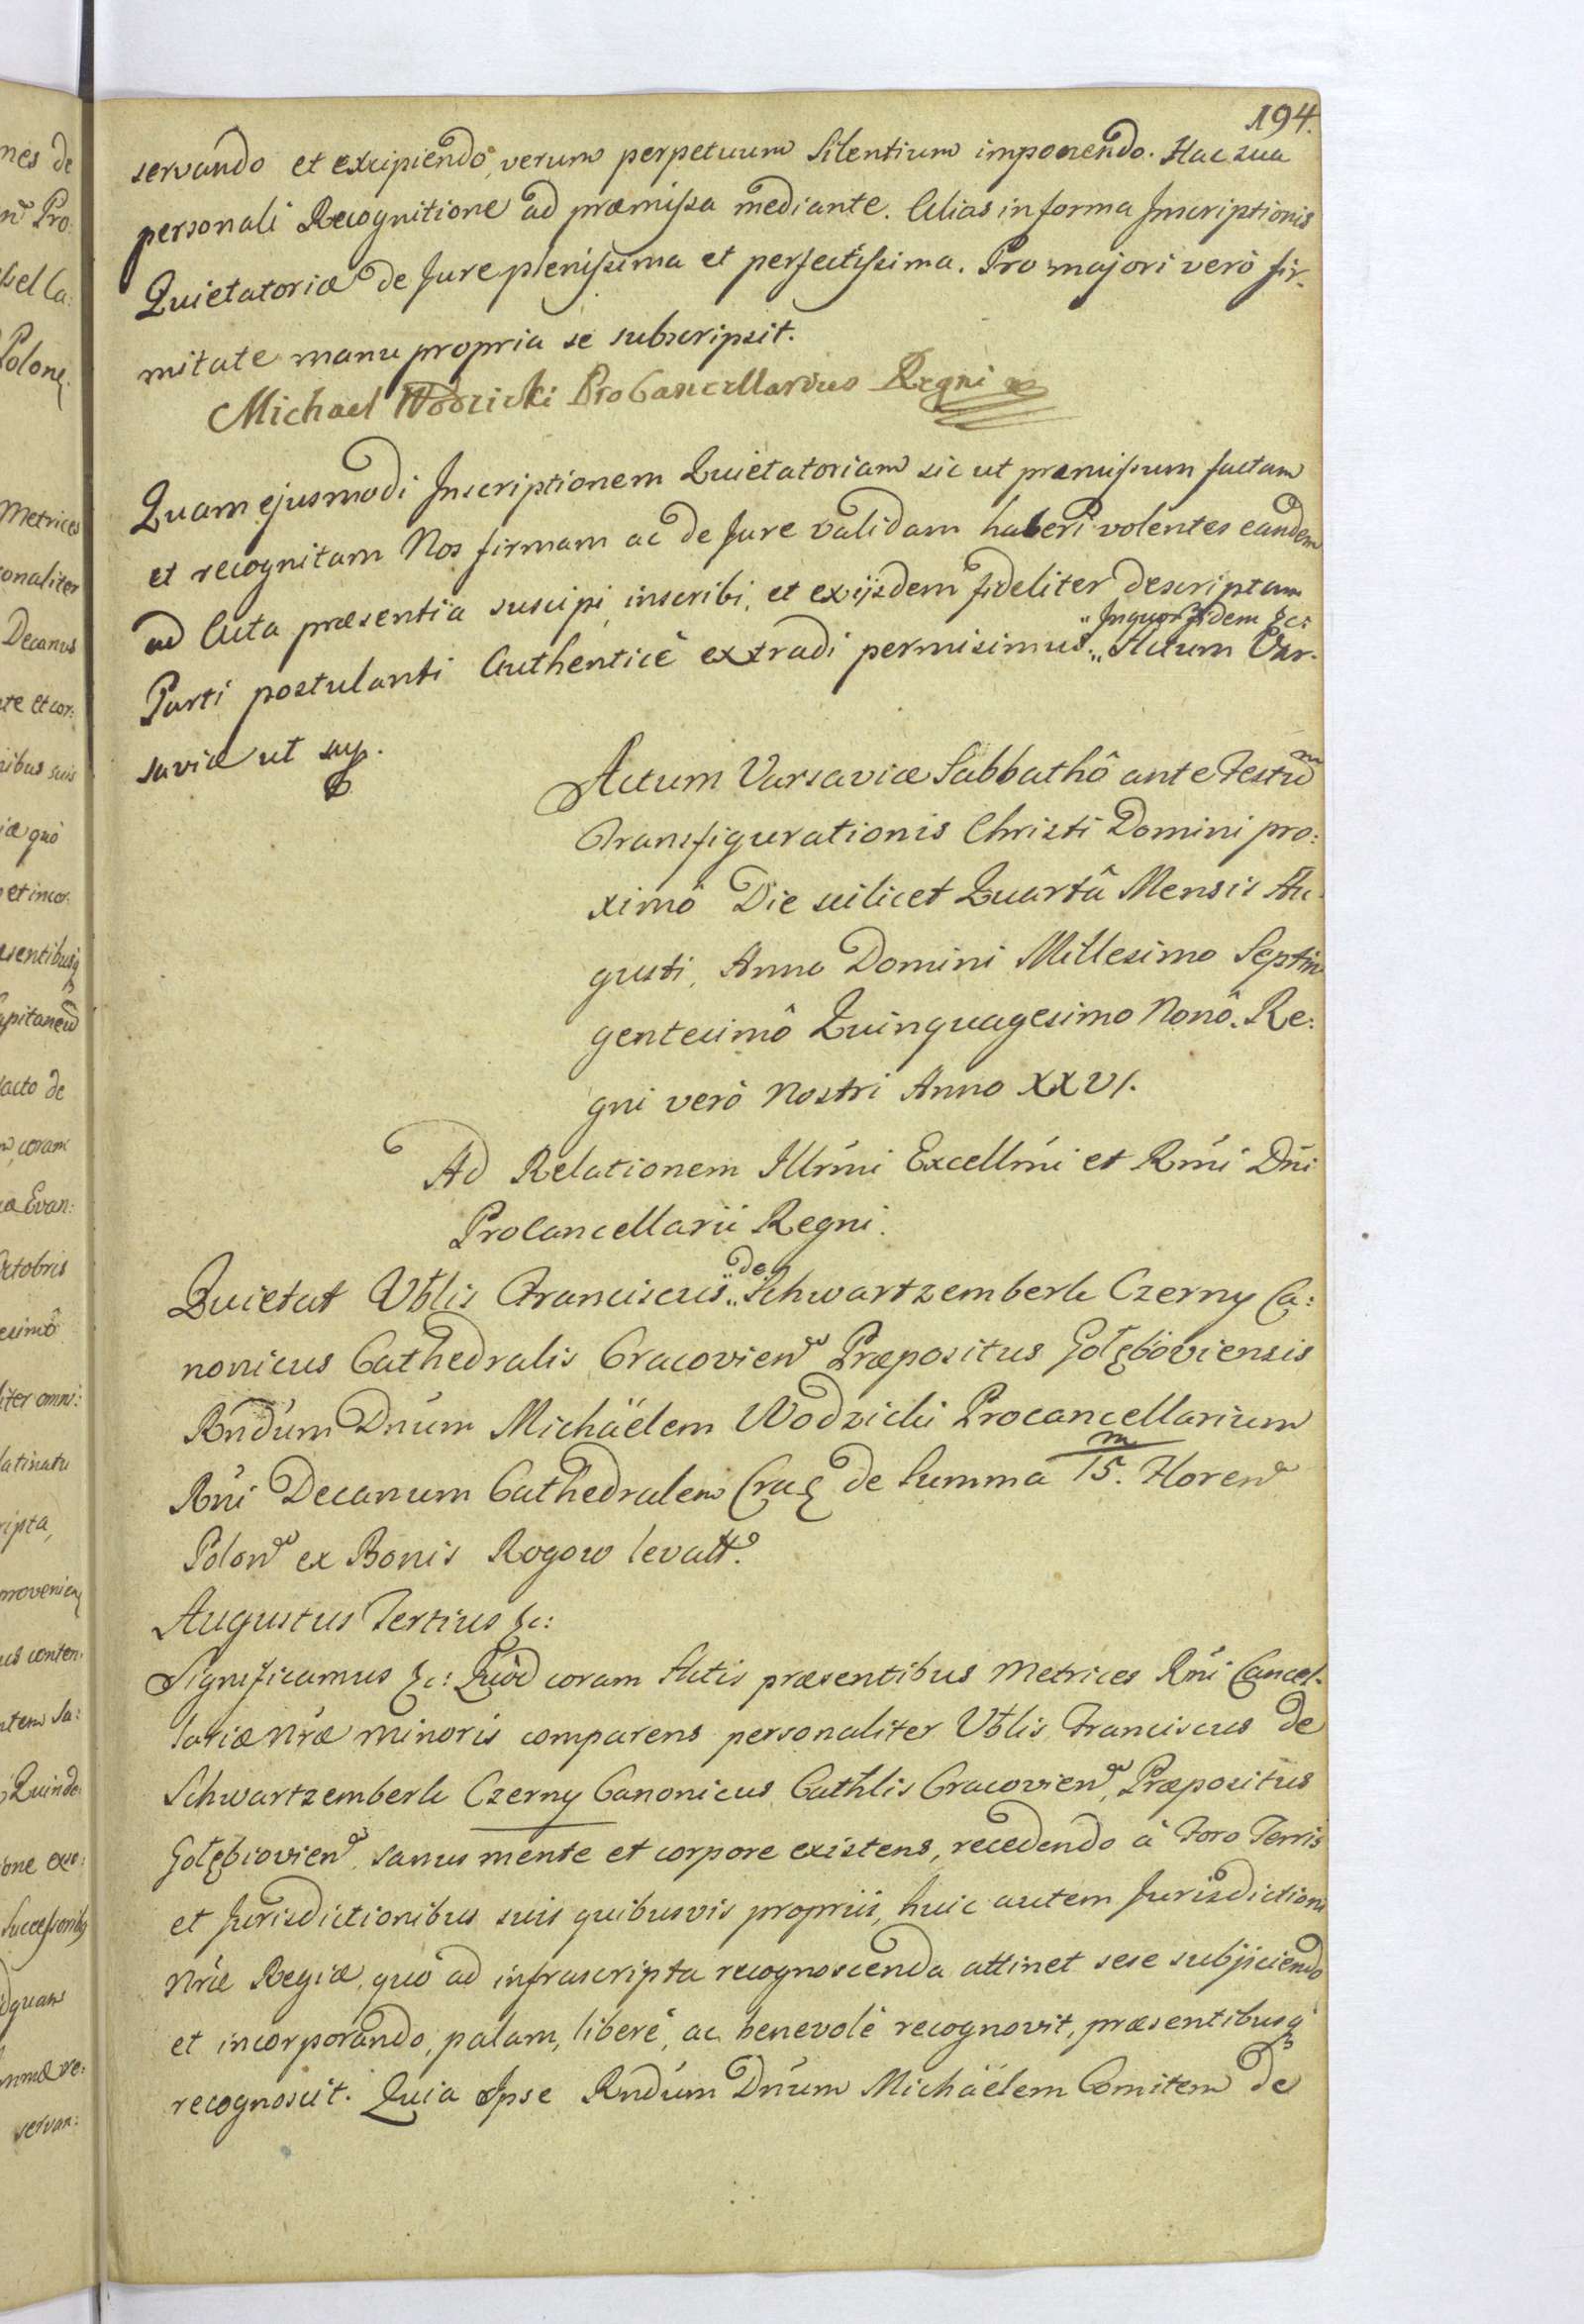 194.
servando et excipiendo, verum perpetuum Silentium imponendo. Hac sua
personali Recognitione ad præmissa mediante. Alias in forma Inscriptionis
Quietatoriæ de Jure plenissima et perfectissima. Pro majori verò fir-
mitate manu propria se subscripsit.
Michael Wodzicki ProCancellarius Regni
Quam ejusmodi Inscriptionem Quietatoriam sic ut præmissum factam
et recognitam Nos firmam ac de Jure validam haberi volentes eandem
ad Acta præsentia suscipi, inscribi, et exijsdem fideliter descriptam
„Inquor fidem &c:
Parti postulanti Authenticè extradi permisimus.„ Actum Var-
saviæ ut sup.
Actum Varsaviæ Sabbathô ante Festum
Transfigurationis Christi Domini pro:
ximô Die scilicet Quartâ Mensis Au-
gusti, Anno Domini Millesimo Septin
gentesimô Quinquagesimo Nonô. Re:
gni verò Nostri Anno XXVI.
Ad Relationem Illr̃mi Excellm̃i et Rm̃i Dñi
ProCancellarii Regni.
Quietat Vb̃lis Franciscus „de„ Schwartzemberk Czerny Ca:
nonicus Cathedralis Cracovien Præpositus Gołębioviensis
Rnd̃um Dñum Michäelem Wodzicki Procancellarium
Rñi Decanum Cathedralem Crac de Summa 15.m Floren
Polon ex Bonis Rogow levatt.
Augustus Tertius &c:
Significamus &c: Quòd coram Actis præsentibus Metrices Rñi Cancel-
lariæ Nr̃æ Minoris comparens personaliter Vb̃lis Franciscus de
Schwartzemberk Czerny Canonicus Cathlis Cracovien, Præpositus
Gołębiovien sanus mente et corpore existens, recedendo à Foro Terris
et Jurisdictionibus suis quibusvis propriis, huic autem Jurisdictioni
Nr̃æ Regiæ, quò ad infrascripta recognoscenda attinet sese subjiciendo
et incorporando, palam, liberè, ac benevolè recognovit, præsentibusq
recognoscit. Quia Ipse Rnd̃um Dñum Michäelem Comitem de